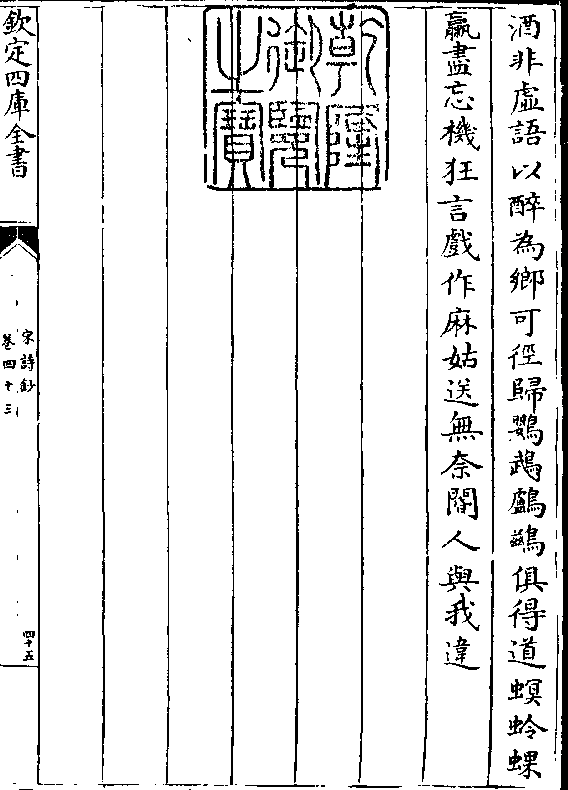 酒非虛語以醉為鄉可徑歸鸚鵡鸕鷀俱得道螟蛉蜾
蠃盡忘機狂言戲作麻姑送無奈閽人與我違
乾隆
御覽
之寶
欽定四庫全書
宋詩鈔
卷四十三
四十五